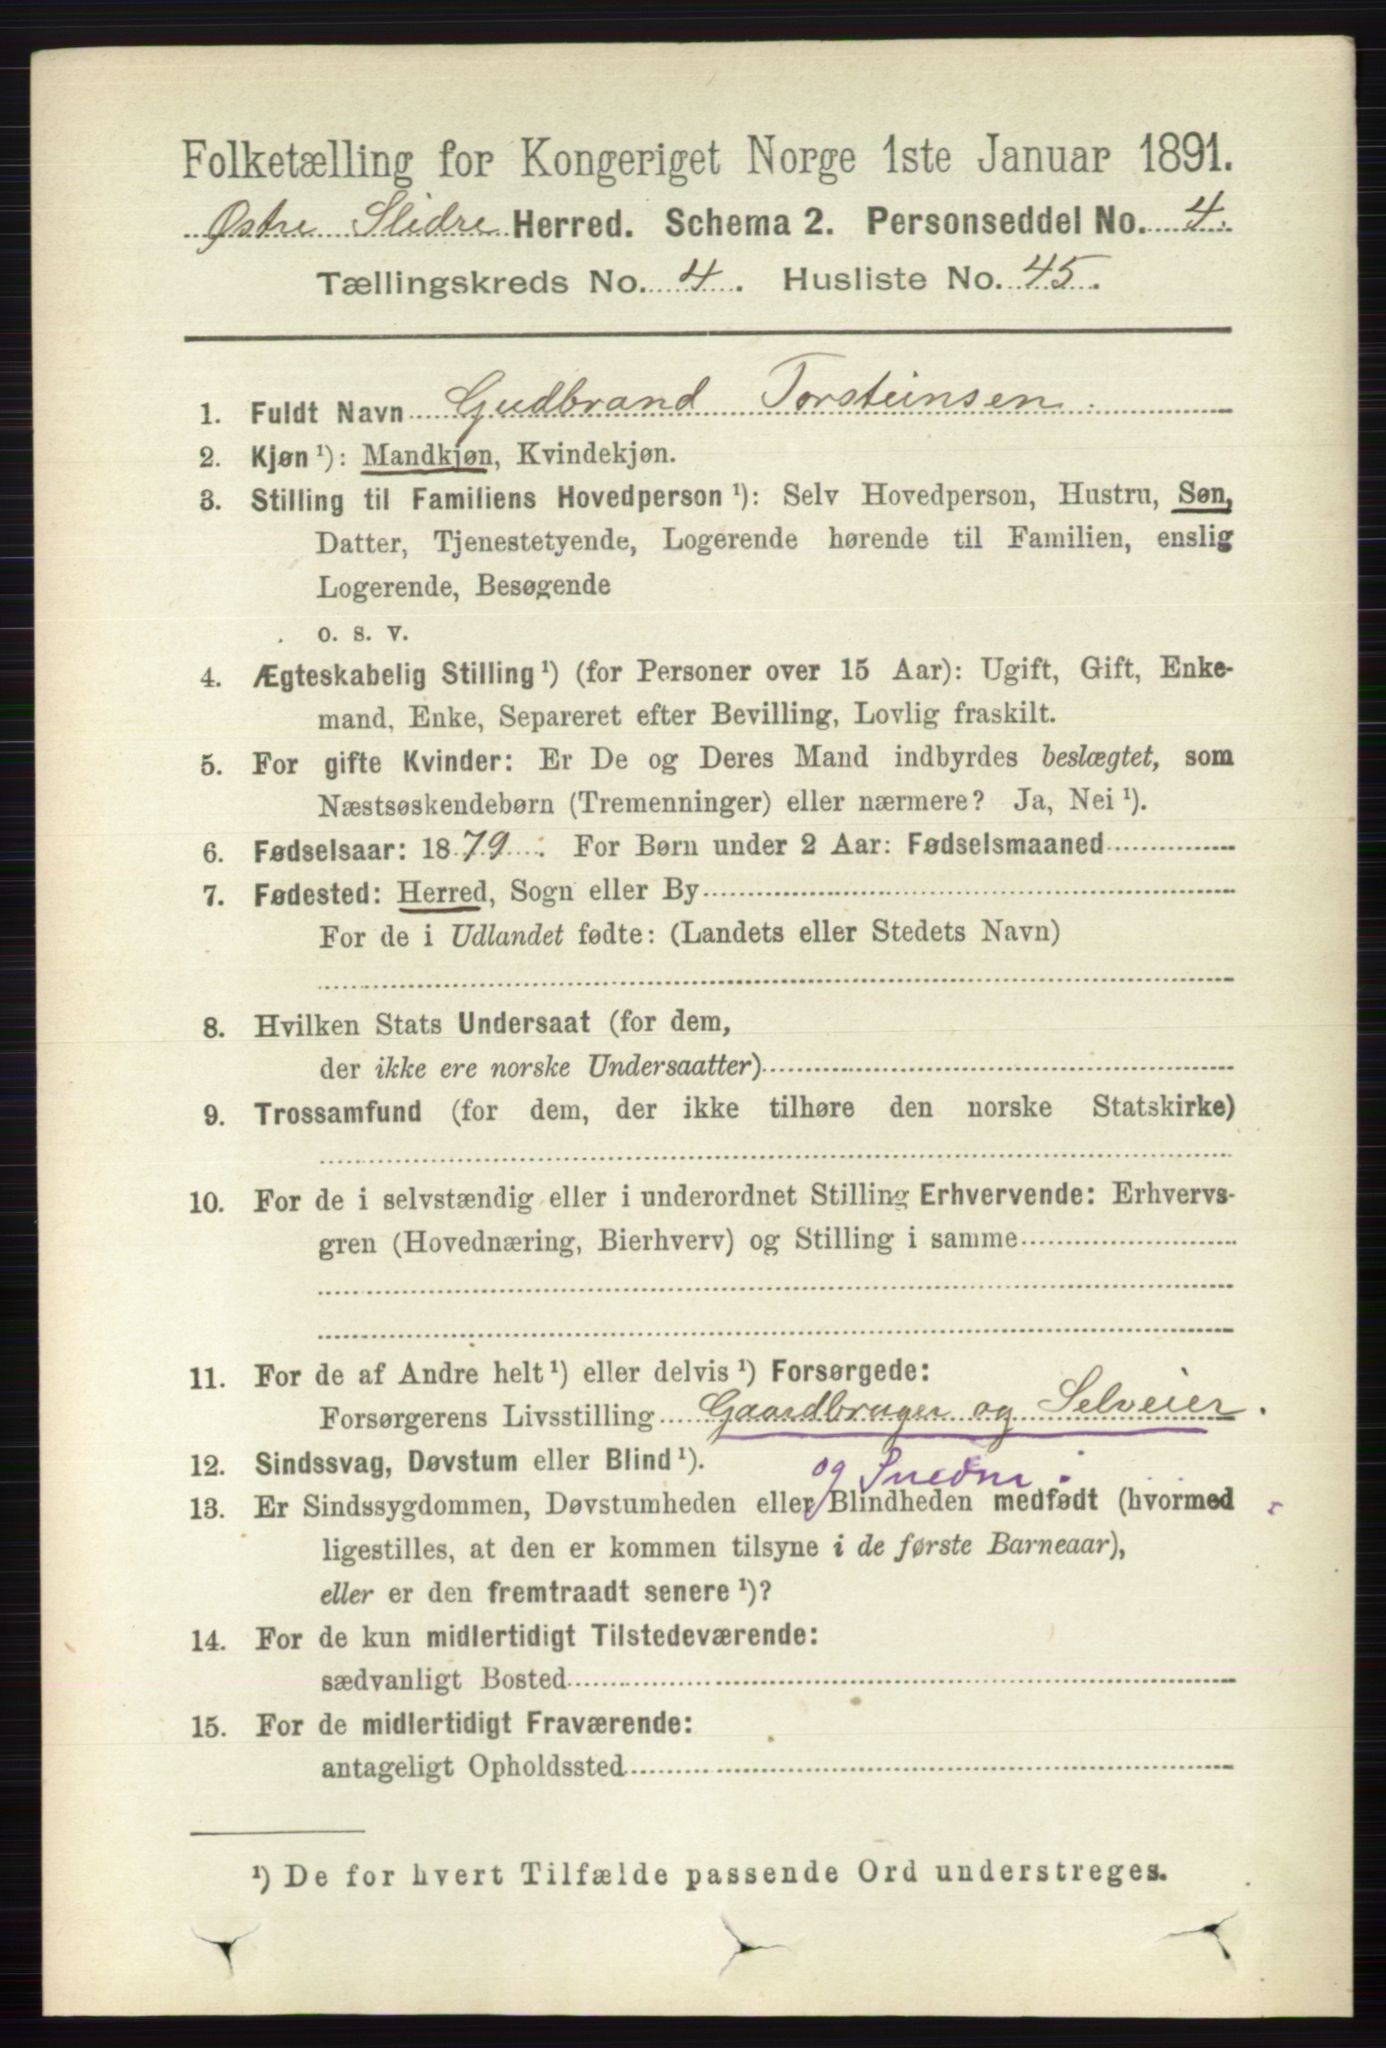 Folketælling for Kongeriget Norge 1ste Januar 1891.
Østre Slidre Herred. Schema 2. Personseddel No. 4.
Tællingskreds No. 4. Husliste No. 45.
1. Fuldt Navn Gudbrand Torsteinsen.
2. Kjøn ¹): Mandkjøn, Kvindekjøn.
3. Stilling til Familiens Hovedperson ¹): Selv Hovedperson, Hustru, Søn,
Datter, Tjenestetyende, Logerende hørende til Familien, enslig
Logerende, Besøgende
o. s. v.
4. Ægteskabelig Stilling ¹) (for Personer over 15 Aar): Ugift, Gift, Enke-
mand, Enke, Separeret efter Bevilling, Lovlig fraskilt.
5. For gifte Kvinder: Er De og Deres Mand indbyrdes beslægtet, som
Næstsøskendebørn (Tremenninger) eller nærmere? Ja, Nei ¹).
6. Fødselsaar: 1879. For Børn under 2 Aar: Fødselsmaaned
7. Fødested: Herred, Sogn eller By
For de i Udlandet fødte: (Landets eller Stedets Navn)
8. Hvilken Stats Undersaat (for dem,
der ikke ere norske Undersaatter)
9. Trossamfund (for dem, der ikke tilhøre den norske Statskirke)
10. For de i selvstændig eller i underordnet Stilling Erhvervende: Erhvervs-
gren (Hovednæring, Bierhverv) og Stilling i samme
11. For de af Andre helt ¹) eller delvis ¹) Forsørgede:
Forsørgerens Livsstilling Gaardbruger og Selveier.
og
12. Sindssvag, Døvstum eller Blind ¹).
13. Er Sindssygdommen, Døvstumheden eller Blindheden medfødt (hvormed
ligestilles, at den er kommen tilsyne i de første Barneaar),
eller er den fremtraadt senere ¹)?
14. For de kun midlertidigt Tilstedeværende:
sædvanligt Bosted
15. For de midlertidigt Fraværende:
antageligt Opholdssted
¹) De for hvert Tilfælde passende Ord understreges.